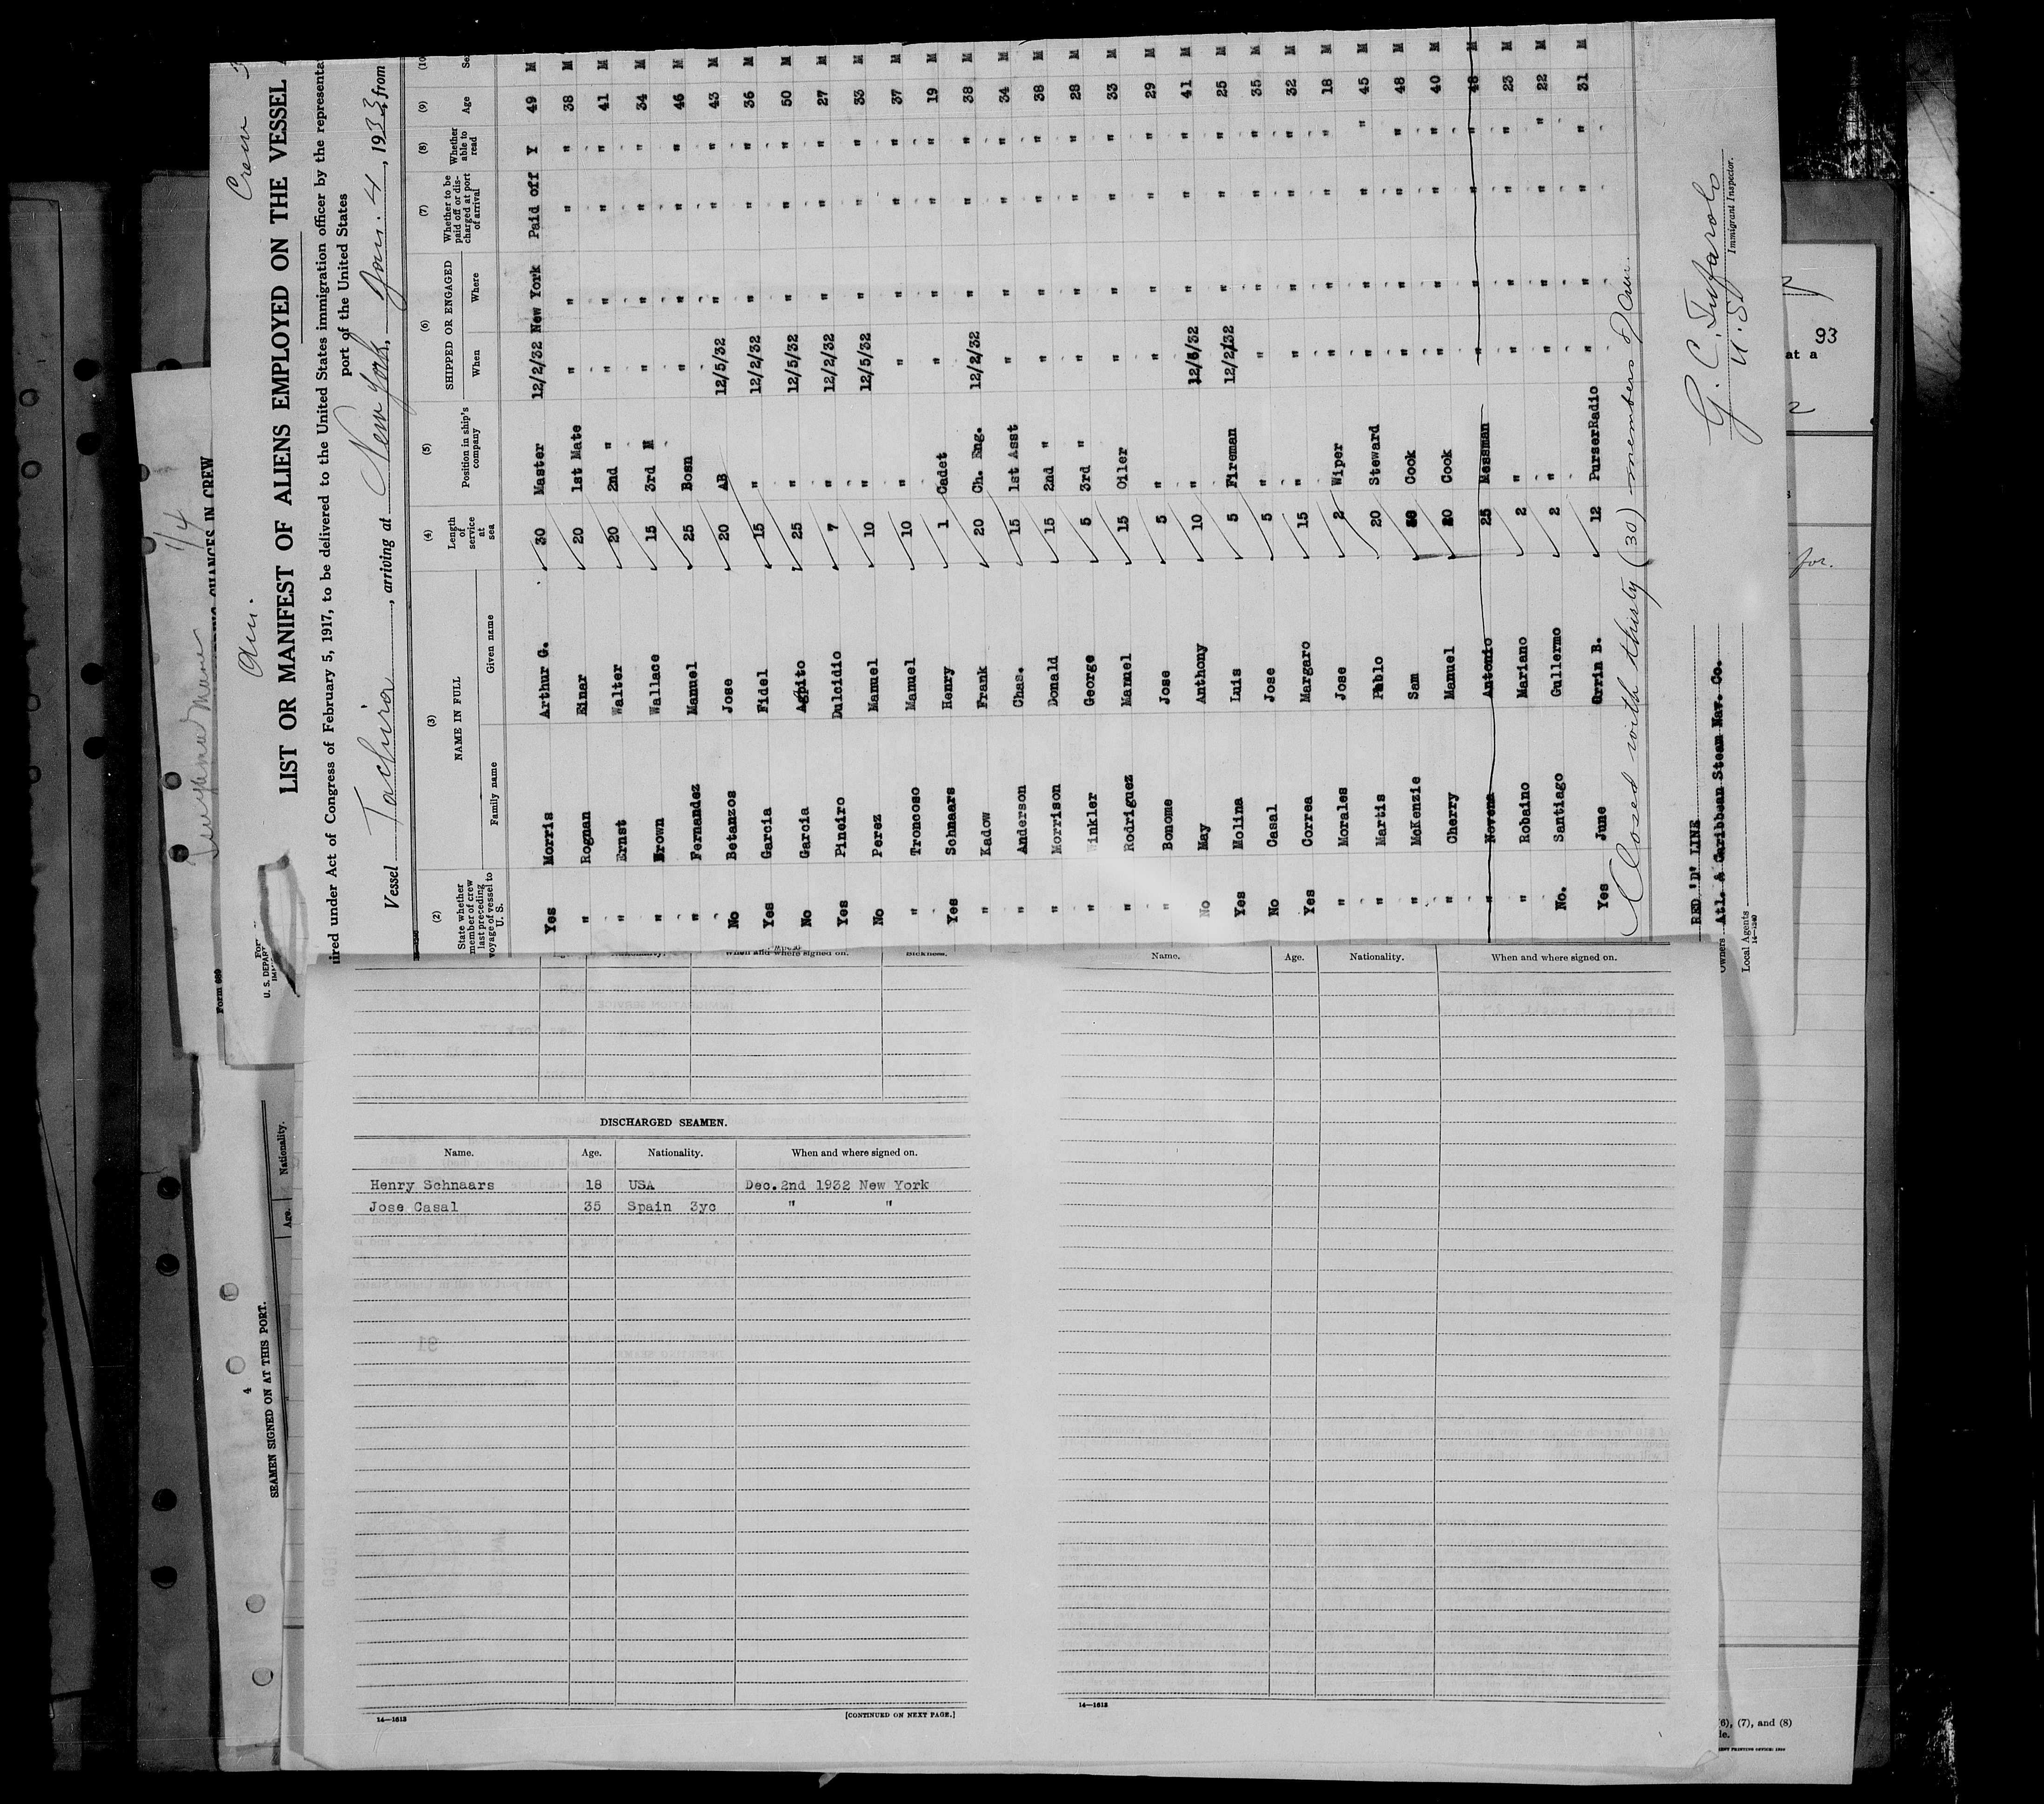 1/4
Crew
Am.
LIST OR MANIFEST OF ALIENS EMPLOYED ON THE VESSEL
ired under Act of Congress of February 5, 1917, to be delivered to the United States immigration officer by the representa
port of the United States
Vessel Tachira, arriving at New York, Jan. 4, 1933, from
(2) (3) (4) (5) (6) (7) (8) (9) (10
State whether member of crew last preceding voyage of vessel to U. S. NAME IN FULL Family name Given name Length of service at sea Position in ship's company SHIPPED OR ENGAGED When Where Whether to be paid off or discharged at port of arrival Whether able to read Age Se
Yes Morris Arthur G. 30 Master 12/2/32 New York Paid off Y 49 M
" Rognan Einar 20 1st Mate " " " " 38 M
" Ernst Walter 20 2nd " " " " " 41 M
" Brown Wallace 15 3rd M " " " " 34 M
" Fernandez Manuel 25 Bosn " " " " 46 M
No Betanzos Jose 20 AB 12/5/32 " " " 43 M
Yes Garcia Fidel 15 " 12/2/32 " " " 36 M
No Garcia Agpito 25 " 12/5/32 " " " 50 M
Yes Pineiro Dulcidio 7 " 12/2/32 " " " 27 M
No Perez Manuel 10 " 12/5/32 " " " 33 M
" Troncoso Manuel 10 " " " " " 37 M
Yes Schnaars Henry 1 Cadet " " " " 19 M
" Kadow Frank 20 Ch. Eng. 12/2/32 " " " 38 M
" Anderson Chas. 15 1st Asst " " " " 34 M
" Morrison Donald 15 2nd " " " " " 38 M
" Winkler George 5 3rd " " " " " 28 M
" Rodriguez Manuel 15 Oiler " " " " 33 M
" Bonome Jose 5 " " " " " 29 M
No May Anthony 10 " 12/5/32 " " " 41 M
Yes Molina Luis 5 Fireman 12/2/32 " " " 25 M
No Casal Jose 5 " " " " " 35 M
Yes Correa Margaro 15 " " " " " 32 M
" Morales Jose 2 Wiper " " " " 18 M
" Martis Pablo 20 Steward " " " " 45 M
" McKenzie Sam Cook " " " " 48 M
" Cherry Manuel 20 Cook " " " " 40 M
" Novena Antonio 25 Messman " " " " 48 M
" Robaino Mariano 2 " " " " " 23 M
No. Santiago Gullermo 2 " " " " " 22 M
Yes June Orrin B. 12 PurserRadio " " " " 31 M
Closed with thirty (30) members of Crew.
RED 'D' LINE
Owners Atl. & Caribbean Steam Nav. Co.
Local Agents
14—1240
U. S.
Immigrant Inspector.
Form 689
U. S. DEPART
CHANGES IN CREW
4
SEAMEN SIGNED ON AT THIS PORT.
Age. Nationality.
Nationality. When and where signed on. Sickness.
DISCHARGED SEAMEN.
Name. Age. Nationality. When and where signed on.
Henry Schnaars 18 USA Dec.2nd 1932 New York
Jose Casal 35 Spain 3yc " "
14—1612
[CONTINUED ON NEXT PAGE.]
Name. Age. Nationality. When and where signed on.
14—1612
93
at a
2
for.
(6), (7), and (8)